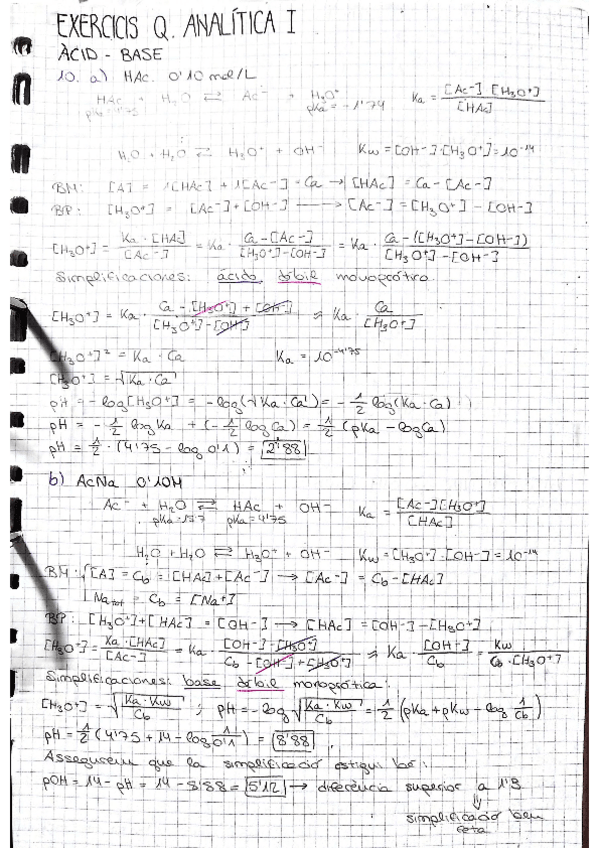 EXERCICIS Q. ANALÍTICA I
ÀCID - BASE
10. a) HAc 0'10 mol/L
HAc + H₂O ⇄ Ac⁻ + H₃O⁺ Ka = [Ac-] [H₃O⁺] / [HAc]
pKa = 4'75 pKa = -1'74
H₂O + H₂O ⇄ H₃O⁺ + OH⁻ Kw = [OH-]·[H₃O⁺] = 10⁻¹⁴
BM: [A] = 1[HAc] + 1[Ac-] = Ca → [HAc] = Ca - [Ac-]
BP: [H₃O⁺] = [Ac-] + [OH-] → [Ac-] = [H₃O⁺] - [OH-]
[H₃O⁺] = Ka · [HAc] / [Ac-] = Ka · Ca - [Ac-] / [H₃O⁺] - [OH-] = Ka · Ca - ([H₃O⁺] - [OH-]) / [H₃O⁺] - [OH-]
Simplificaciones: ácido débil monoprótico.
[H₃O⁺] = Ka · Ca - [H₃O⁺] + [OH-] / [H₃O⁺] - [OH-] ≈ Ka · Ca / [H₃O⁺]
[H₃O⁺]² = Ka · Ca Ka = 10⁻⁴'⁷⁵
[H₃O⁺] = √Ka · Ca
pH = -log[H₃O⁺] = -log(√Ka · Ca) = -1/2 log(Ka · Ca)
pH = -1/2 log Ka + (-1/2 log Ca) = 1/2 (pKa - log Ca)
pH = 1/2 · (4'75 - log 0'1) = 2'88
b) AcNa 0'10M
Ac⁻ + H₂O ⇄ HAc + OH⁻ Ka = [Ac-][H₃O⁺] / [HAc]
pKa = 4'75
H₂O + H₂O ⇄ H₃O⁺ + OH⁻ Kw = [H₃O⁺]·[OH-] = 10⁻¹⁴
BM: [A] = Cb = [HAc] + [Ac-] → [Ac-] = Cb - [HAc]
Na tot = Cb = [Na+]
BP: [H₃O⁺] + [HAc] = [OH-] → [HAc] = [OH-] - [H₃O⁺]
[H₃O⁺] = Ka · [HAc] / [Ac-] = Ka · [OH-] - [H₃O⁺] / Cb - [OH-] + [H₃O⁺] ≈ Ka · [OH-] / Cb = Kw / Cb · [H₃O⁺]
Simplificaciones: base débil monoprótica:
[H₃O⁺] = √Ka · Kw / Cb ; pH = -log √Ka · Kw / Cb = 1/2 (pKa + pKw - log 1/Cb)
pH = 1/2 (4'75 + 14 - log 1/0'1) = 8'88
Assegurem que la simplificació estigui bé:
pOH = 14 - pH = 14 - 8'88 = 5'12 → diferència superior a 1'3
simplificació ben
feta